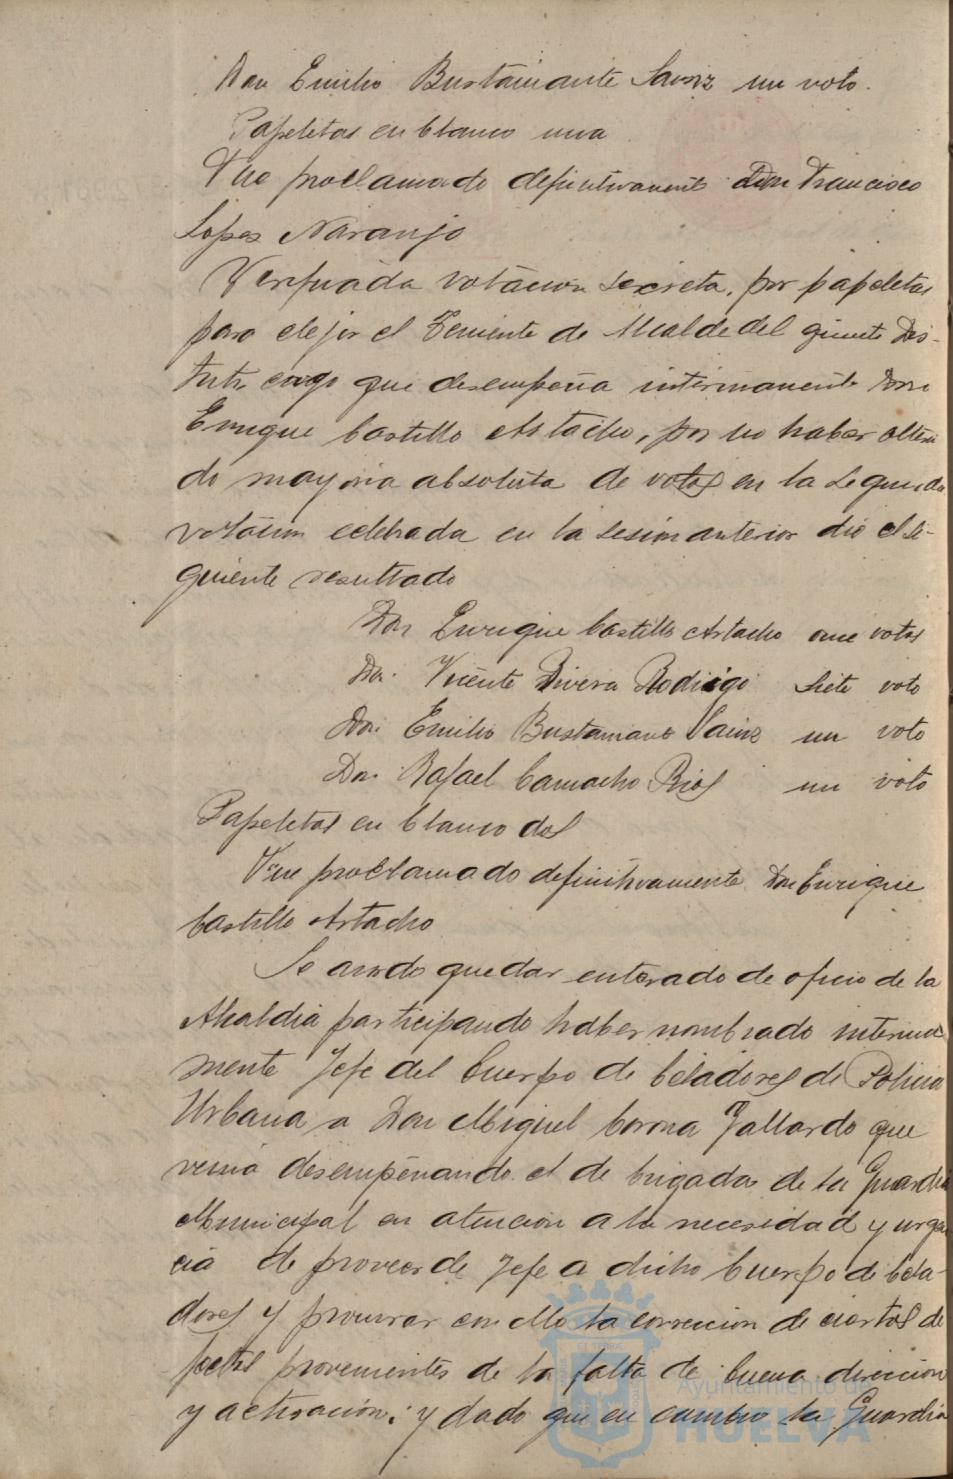 Don Emilio Bustamante Sainz un voto.
Papeletas en blanco una
Fue proclamado definitivamente Don Francisco
Lopez Naranjo
Verificada votacion secreta, por papeletas
para elejir el Teniente de Alcalde del quinto Dis-
trito cargo que desempeña interinamente Don
Enrique Castillo Astacho, por no haber obteni
do mayoria absoluta de votos en la segunda
votacion celebrada en la sesion anterior dió el si-
guiente resultado
Don Enrique Castillo Astacho once votos
Don Vicente Rivera Rodrigo siete voto
Don Emilio Bustamante Sainz un voto
Don Rafael Camacho Rios un voto
Papeletas en blanco dos
Fue proclamado definitivamente Don Enrique
Castillo Astacho
Se acordo quedar enterado de oficio de la
Alcaldia participando haber nombrado interina
mente Jefe del Cuerpo de Celadores de Policia
Urbana a Don Miguel Corona Gallardo que
venia desempeñando el de brigada de la Guardia
Municipal en atencion a la necesidad y urgen
cia de proveer de Jefe a dicho Cuerpo de Cela-
dores y procurar con ello la correccion de ciertos de
fectos provenientes de la falta de buena direccion
y activacion; y dado que en cambio la Guardia
Ayuntamiento de
HUELVA